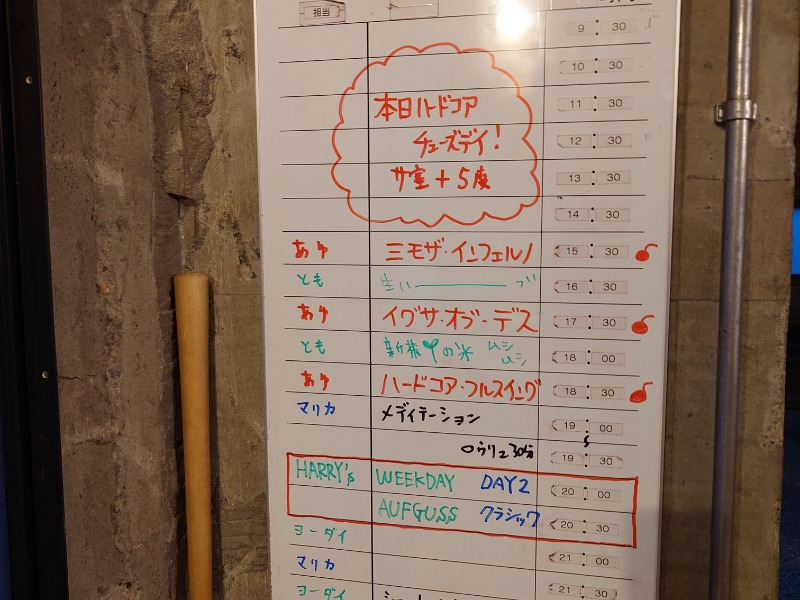 担当
9 : 30
10 : 30
本日ハードコア 11 : 30
チューズデイ! 12 : 30
サ室+5度 13 : 30
14 : 30
あり ミモザ・インフェルノ 15 : 30
とも 16 : 30
あり イグサ・オブ・デス 17 : 30
とも 新芽の米 ムシムシ 18 : 00
あり ハードコア・フルスイング 18 : 30
マリカ メディテーション 19 : 00
ロウリュ30分 19 : 30
HARRY's WEEKDAY DAY2 20 : 00
AUFGUSS クラシック 20 : 30
ヨーダイ
マリカ 21 : 00
ヨーダイ 21 : 30